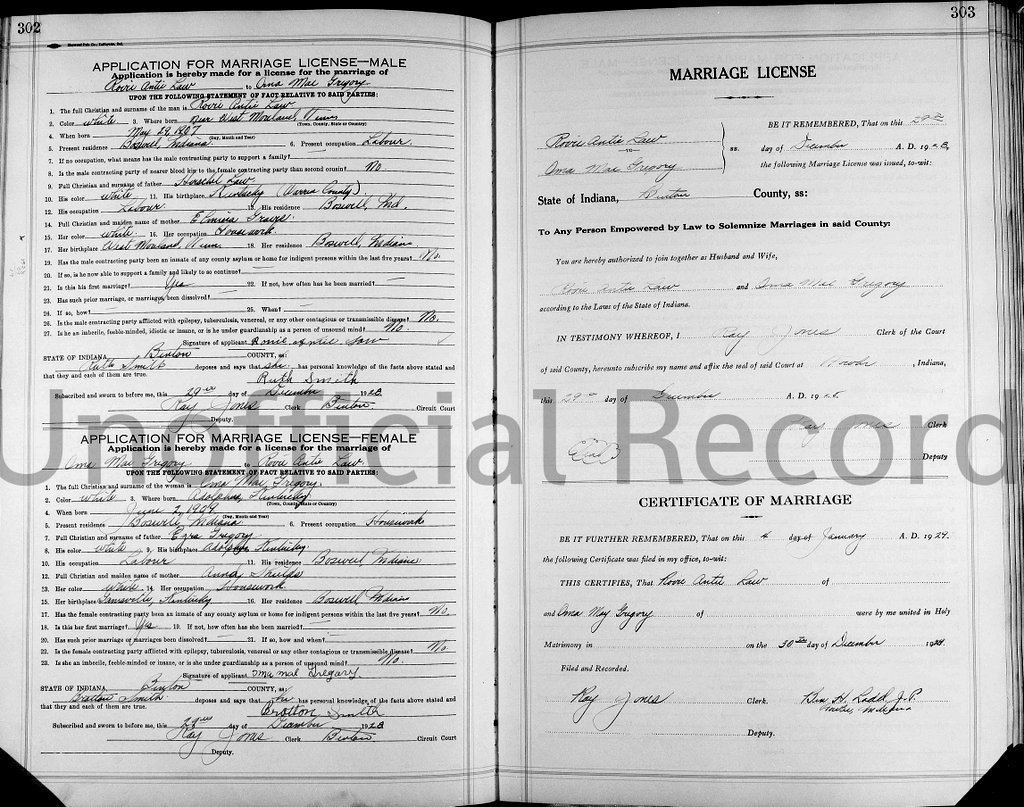 302
Hayward Pub. Co., Lafayette, Ind.
APPLICATION FOR MARRIAGE LICENSE—MALE
Application is hereby made for a license for the marriage of
Rovie Antis Law to Oma Mae Gregory
UPON THE FOLLOWING STATEMENT OF FACT RELATIVE TO SAID PARTIES:
1. The full Christian and surname of the man is Rovie Antis Law
2. Color white 3. Where born near West Moreland, Tenn
(Town, County, State or Country)
4. When born May 29, 1907
(Day, Month and Year)
5. Present residence Boswell, Indiana 6. Present occupation Labour
7. If no occupation, what means has the male contracting party to support a family?
8. Is the male contracting party of nearer blood kin to the female contracting party than second cousin? No
9. Full Christian and surname of father Herschel Law
10. His color white 11. His birthplace Kentucky (Warren County)
12. His occupation Labour 13. His residence Boswell, Ind.
14. Full Christian and maiden name of mother Elmina Graves
15. Her color white 16. Her occupation Housework
17. Her birthplace West Moreland, Tenn 18. Her residence Boswell, Indiana
19. Has the male contracting party been an inmate of any county asylum or home for indigent persons within the last five years? No
20. If so, is he now able to support a family and likely to so continue?
21. Is this his first marriage? Yes 22. If not, how often has he been married?
23. Has such prior marriage, or marriages, been dissolved?
24. If so, how? 25. When?
26. Is the male contracting party afflicted with epilepsy, tuberculosis, venereal, or any other contagious or transmissible disease? No.
27. Is he an imbecile, feeble-minded, idiotic or insane, or is he under guardianship as a person of unsound mind? No.
Signature of applicant Rovie Antis Law
STATE OF INDIANA, Benton COUNTY, ss:
Ruth Smith deposes and says that she has personal knowledge of the facts above stated and
that they and each of them are true.
Ruth Smith
Subscribed and sworn to before me, this 29th day of December 1928
Ray Jones Clerk Benton Circuit Court
Deputy.
APPLICATION FOR MARRIAGE LICENSE—FEMALE
Application is hereby made for a license for the marriage of
Oma Mae Gregory to Rovie Antis Law
UPON THE FOLLOWING STATEMENT OF FACT RELATIVE TO SAID PARTIES:
1. The full Christian and surname of the woman is Oma Mae Gregory
2. Color white 3. Where born Adolphus, Kentucky
(Town, County, State or Country)
4. When born June 2, 1909
(Day, Month and Year)
5. Present residence Boswell, Indiana 6. Present occupation Housework
7. Full Christian and surname of father Ezra Gregory
8. His color white 9. His birthplace Adolphus Kentucky
10. His occupation Labour 11. His residence Boswell Indiana
12. Full Christian and maiden name of mother Anna
13. Her color White 14. Her occupation Housework
15. Her birthplace Kentucky 16. Her residence Boswell Indiana
17. Has the female contracting party been an inmate of any county asylum or home for indigent persons within the last five years? No.
18. Is this her first marriage? Yes 19. If not, how often has she been married?
20. Has such prior marriage or marriages been dissolved? 21. If so, how and when?
22. Is the female contracting party afflicted with epilepsy, tuberculosis, venereal, or any other contagious or transmissible disease? No
23. Is she an imbecile, feeble-minded or insane, or is she under guardianship as a person of unsound mind? No.
Signature of applicant Oma Mae Gregory
STATE OF INDIANA, Benton COUNTY, ss:
Bratton Smith deposes and says that he has personal knowledge of the facts above stated and
that they and each of them are true.
Bratton Smith
Subscribed and sworn to before me, this 29th day of December 1928
Ray Jones Clerk Benton Circuit Court
Deputy.
303
MARRIAGE LICENSE
Rovie Antis Law
TO
Oma Mae Gregory
ss.
BE IT REMEMBERED, That on this 29th
day of December A. D. 1928,
the following Marriage License was issued, to-wit:
State of Indiana, Benton County, ss:
To Any Person Empowered by Law to Solemnize Marriages in said County:
You are hereby authorized to join together as Husband and Wife,
Rovie Antis Law and Oma Mae Gregory
according to the Laws of the State of Indiana.
IN TESTIMONY WHEREOF, I Ray Jones Clerk of the Court
of said County, hereunto subscribe my name and affix the seal of said Court at Fowler, Indiana,
this 29th day of December A. D. 1928
Ray Jones Clerk
Deputy
Seal
CERTIFICATE OF MARRIAGE
BE IT FURTHER REMEMBERED, That on this 4 day of January A. D. 1929.
the following Certificate was filed in my office, to-wit:
THIS CERTIFIES, That Rovie Antis Law of
and Oma May Gregory of were by me united in Holy
Matrimony in on the 30th day of December 1928
Filed and Recorded.
Ray Jones Clerk. Ben H. Ladd J.P.
Indiana
Deputy.
Unofficial Record